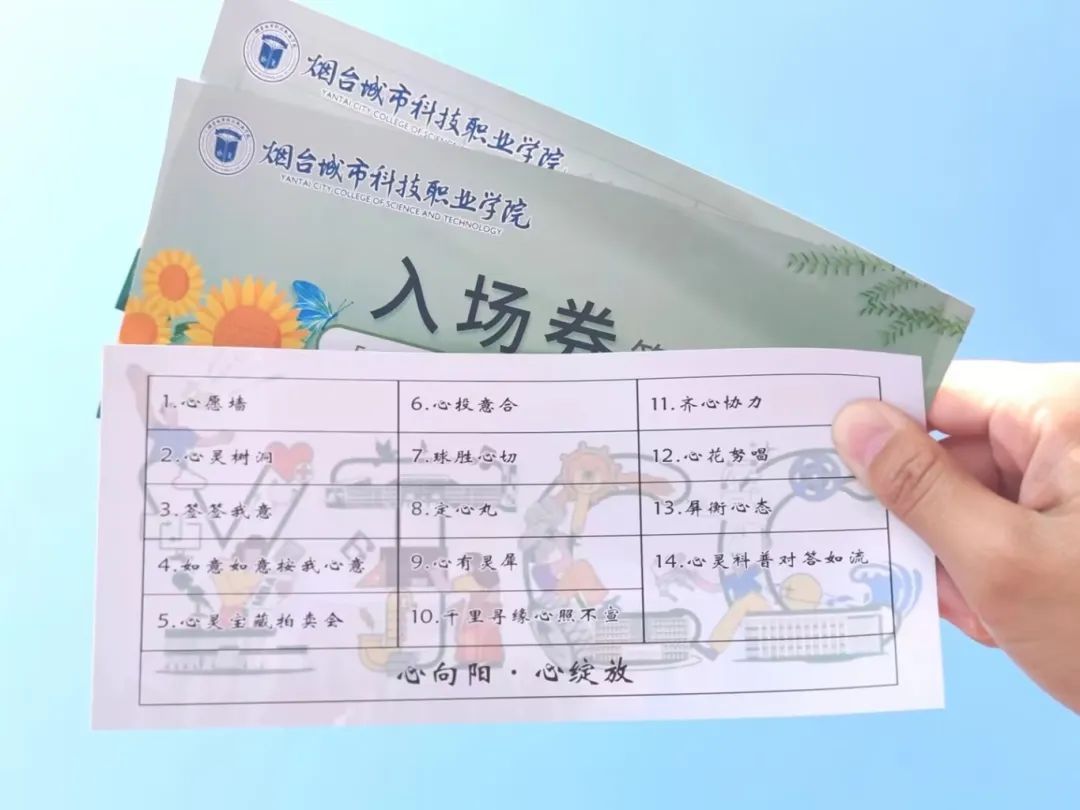 烟台城市科技职业学院
YANTAI CITY COLLEGE OF
烟台城市科技职业学院
YANTAI CITY COLLEGE OF SCIENCE AND TECHNOLOGY
入场券
1.心愿墙
2.心灵树洞
3.签签我意
4.如意如意按我心意
5.心灵宝藏拍卖会
6.心投意合
7.球胜心切
8.定心丸
9.心有灵犀
10.千里寻缘心照不宣
11.齐心协力
12.心花努唱
13.屏衡心态
14.心灵科普对答如流
心向阳·心绽放